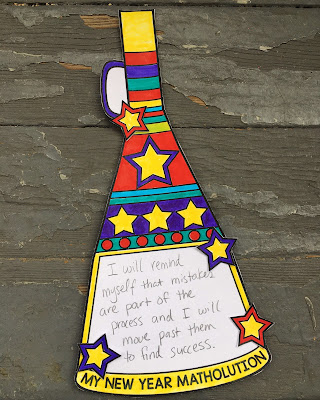 I will remind
myself that mistakes
are part of the
process and I will
move past them
to find success.
MY NEW YEAR MATHOLUTION